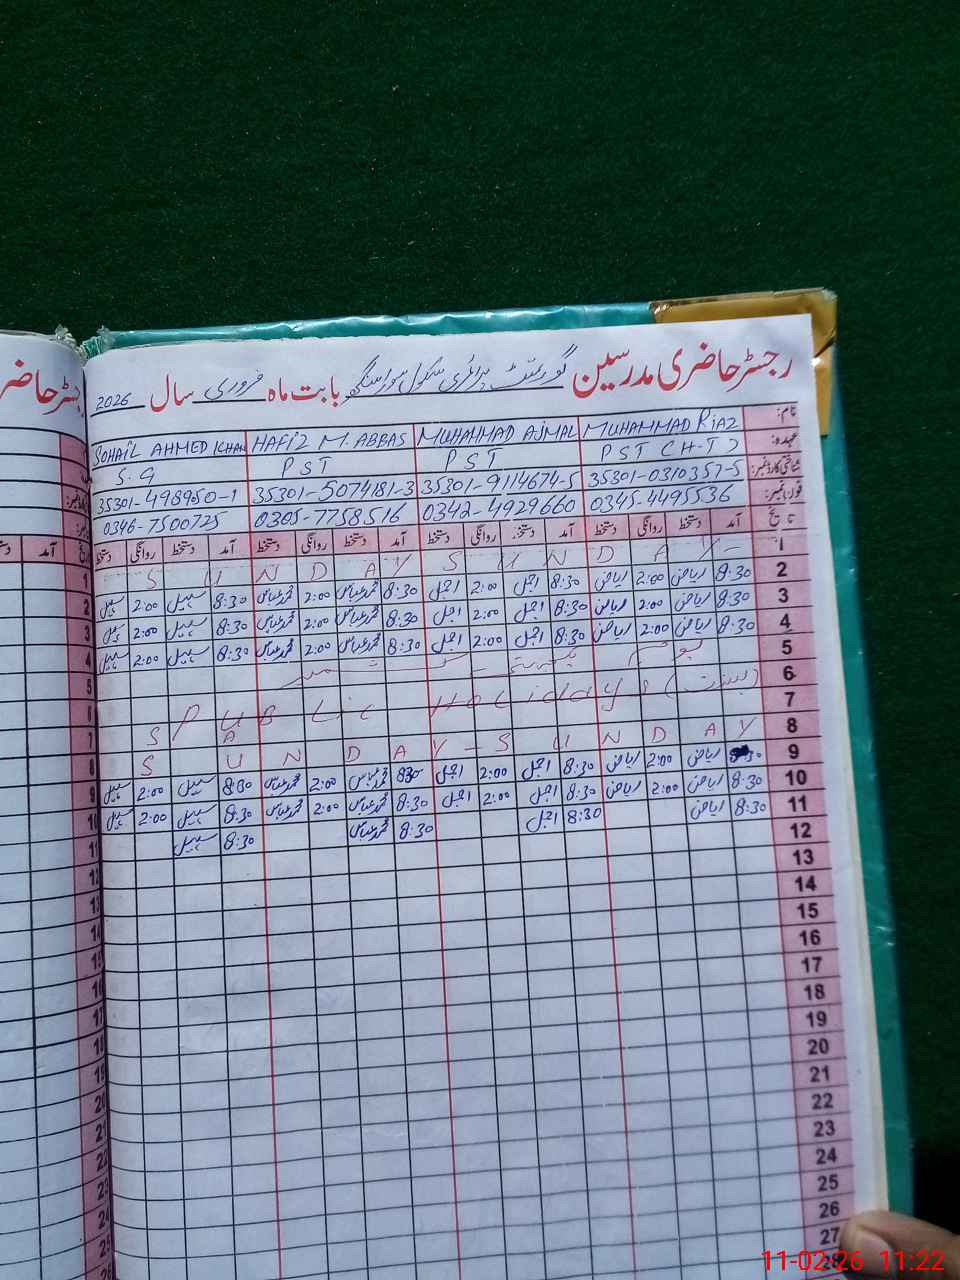 رجسٹر حاضری مدرسین گورنمنٹ پرائمری سکول سوار سنگھ بابت ماہ فروری سال 2026
نام: MUHAMMAD RiAZ MUHAMMAD AJMAL HAFIZ M. ABBAS SOHAIL AHMED KHAN
عہدہ: PST CH-T) PST PST S.G
شناختی کارڈ نمبر: 35301-0310357-5 35301-9114674-5 35301-5074181-3 35301-498950-1
فون نمبر: 0345-4495536 0342-4929660 0305-7758516 0346-7500725
تاریخ آمد دستخط روانگی دستخط آمد دستخط روانگی دستخط آمد دستخط روانگی دستخط آمد دستخط روانگی دستخط
1 S U N D A Y S U N D A Y -
2 8:30 ریاض 2:00 ریاض 8:30 اجمل 2:00 اجمل 8:30 محمد عباس 2:00 محمد عباس 8:30 سہیل 2:00 سہیل
3 8:30 ریاض 2:00 ریاض 8:30 اجمل 2:00 اجمل 8:30 محمد عباس 2:00 محمد عباس 8:30 سہیل 2:00 سہیل
4 8:30 ریاض 2:00 ریاض 8:30 اجمل 2:00 اجمل 8:30 محمد عباس 2:00 محمد عباس 8:30 سہیل 2:00 سہیل
5 یوم یکجہتی کشمیر
6 PUBLIC Holidays (بسنت)
7
8 S U N D A Y - S U N D A Y
9 8:30 ریاض 2:00 ریاض 8:30 اجمل 2:00 اجمل 8:30 محمد عباس 2:00 محمد عباس 8:30 سہیل 2:00 سہیل
10 8:30 ریاض 2:00 ریاض 8:30 اجمل 2:00 اجمل 8:30 محمد عباس 2:00 محمد عباس 8:30 سہیل 2:00 سہیل
11 8:30 ریاض 8:30 اجمل 8:30 محمد عباس 8:30 سہیل
12
13
14
15
16
17
18
19
20
21
22
23
24
25
26
27
28
11-02-26 11:22